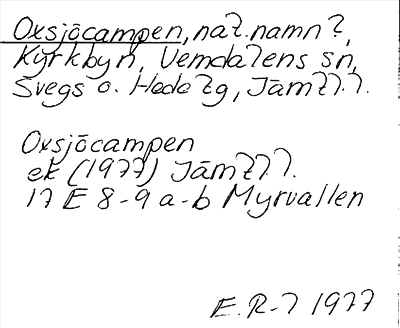 Oxsjöcampen, nat.namn?,
Kyrkbyn, Vemdalens sn,
Svegs o. Hede tg, Jämtl.l.
Oxsjöcampen
ek (1977) Jämtl.l.
17 E 8-9 a-b Myrvallen
E.R-l 1977